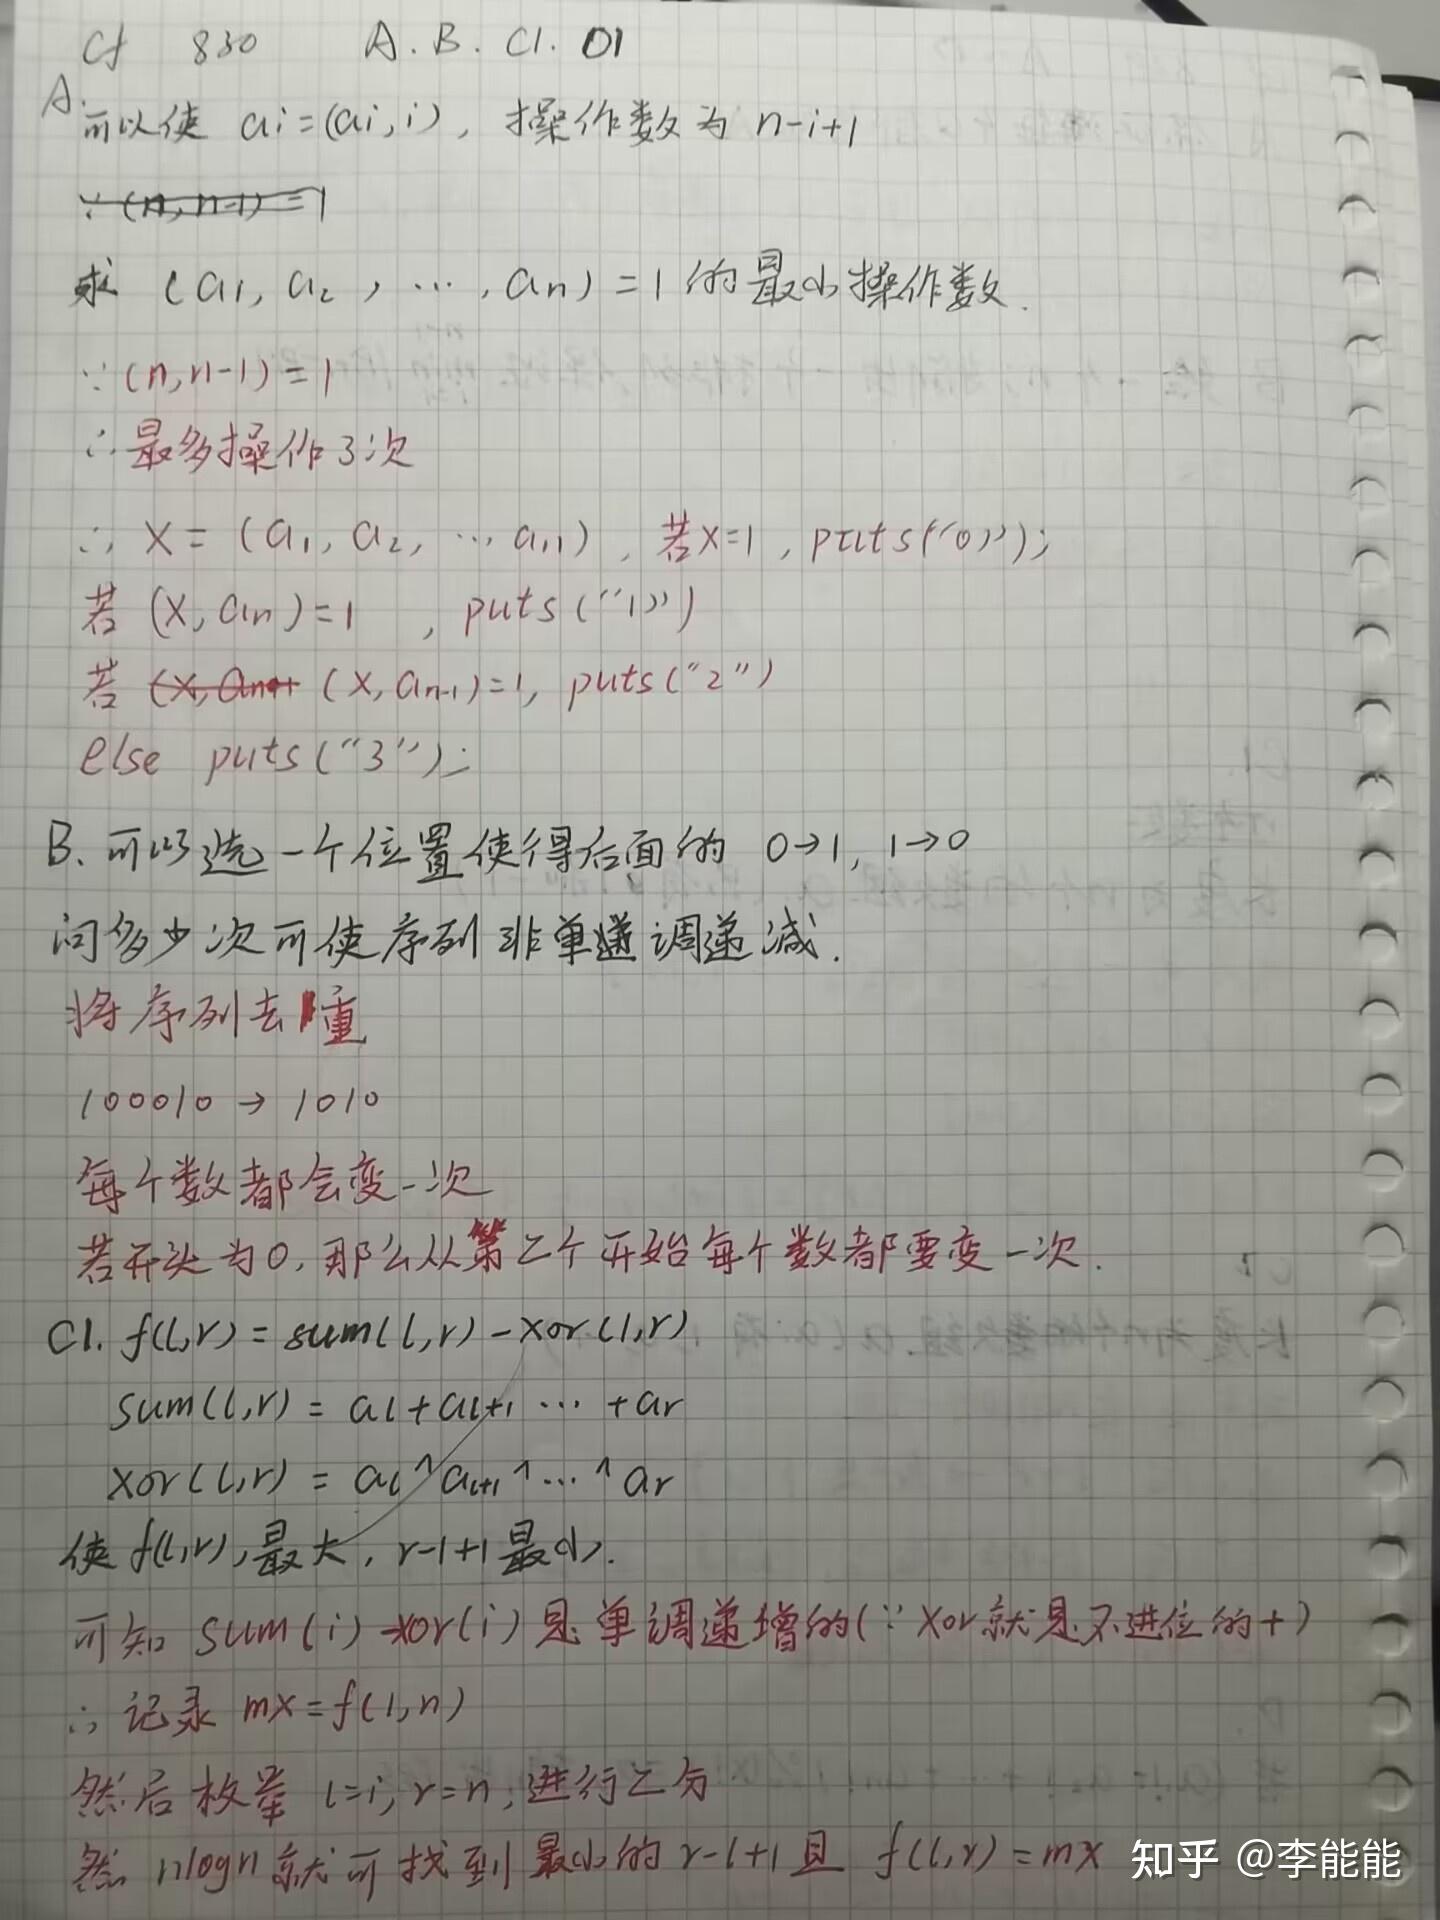 Cf 830 A.B.C1.D1
A.
可以使 ai=(ai,i), 操作数为 n-i+1
∵(n,n-1)=1
求 (a1,a2,…,an)=1的最小操作数.
∵(n,n-1)=1
∴最多操作3次
∴ X=(a1,a2,…an), 若X=1, puts("0");
若 (X,an)=1 , puts("1")
若 (X,an-1 (X,an-1)=1, puts("2")
else puts("3");
B. 可以选一个位置使得后面的 0→1, 1→0
问多少次可使序列非单调递减.
将序列去重
100010→1010
每个数都会变一次
若开头为0,那么从第二个开始每个数都要变一次.
C1. f(l,r)=sum(l,r)-xor(l,r)
sum(l,r)=al+al+1…+ar
xor(l,r)=al^al+1^…^ar
使f(l,r),最大, r-l+1最小.
可知 sum(i)-xor(i)是单调递增的(∵xor就是不进位的+)
∴记录 mx=f(1,n)
然后枚举 l=i,r=n,进行二分
然 nlogn就可找到最小的 r-l+1且 f(l,r)=mx
知乎 @李能能